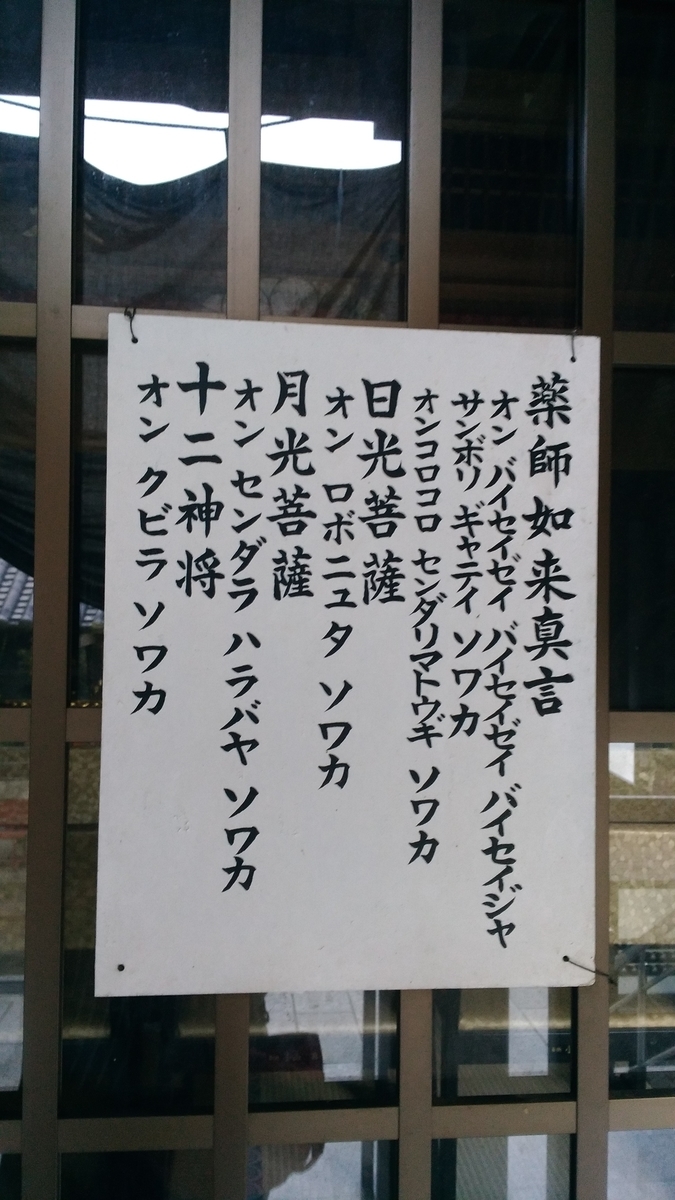 薬師如来真言
オン バイセイゼイ バイセイゼイ バイセイジャ
サンボリ ギャテイ ソワカ
オンコロコロ センダリマトウギ ソワカ
日光菩薩
オン ロボニュタ ソワカ
月光菩薩
オン センダラ ハラバヤ ソワカ
十二神将
オン クビラ ソワカ